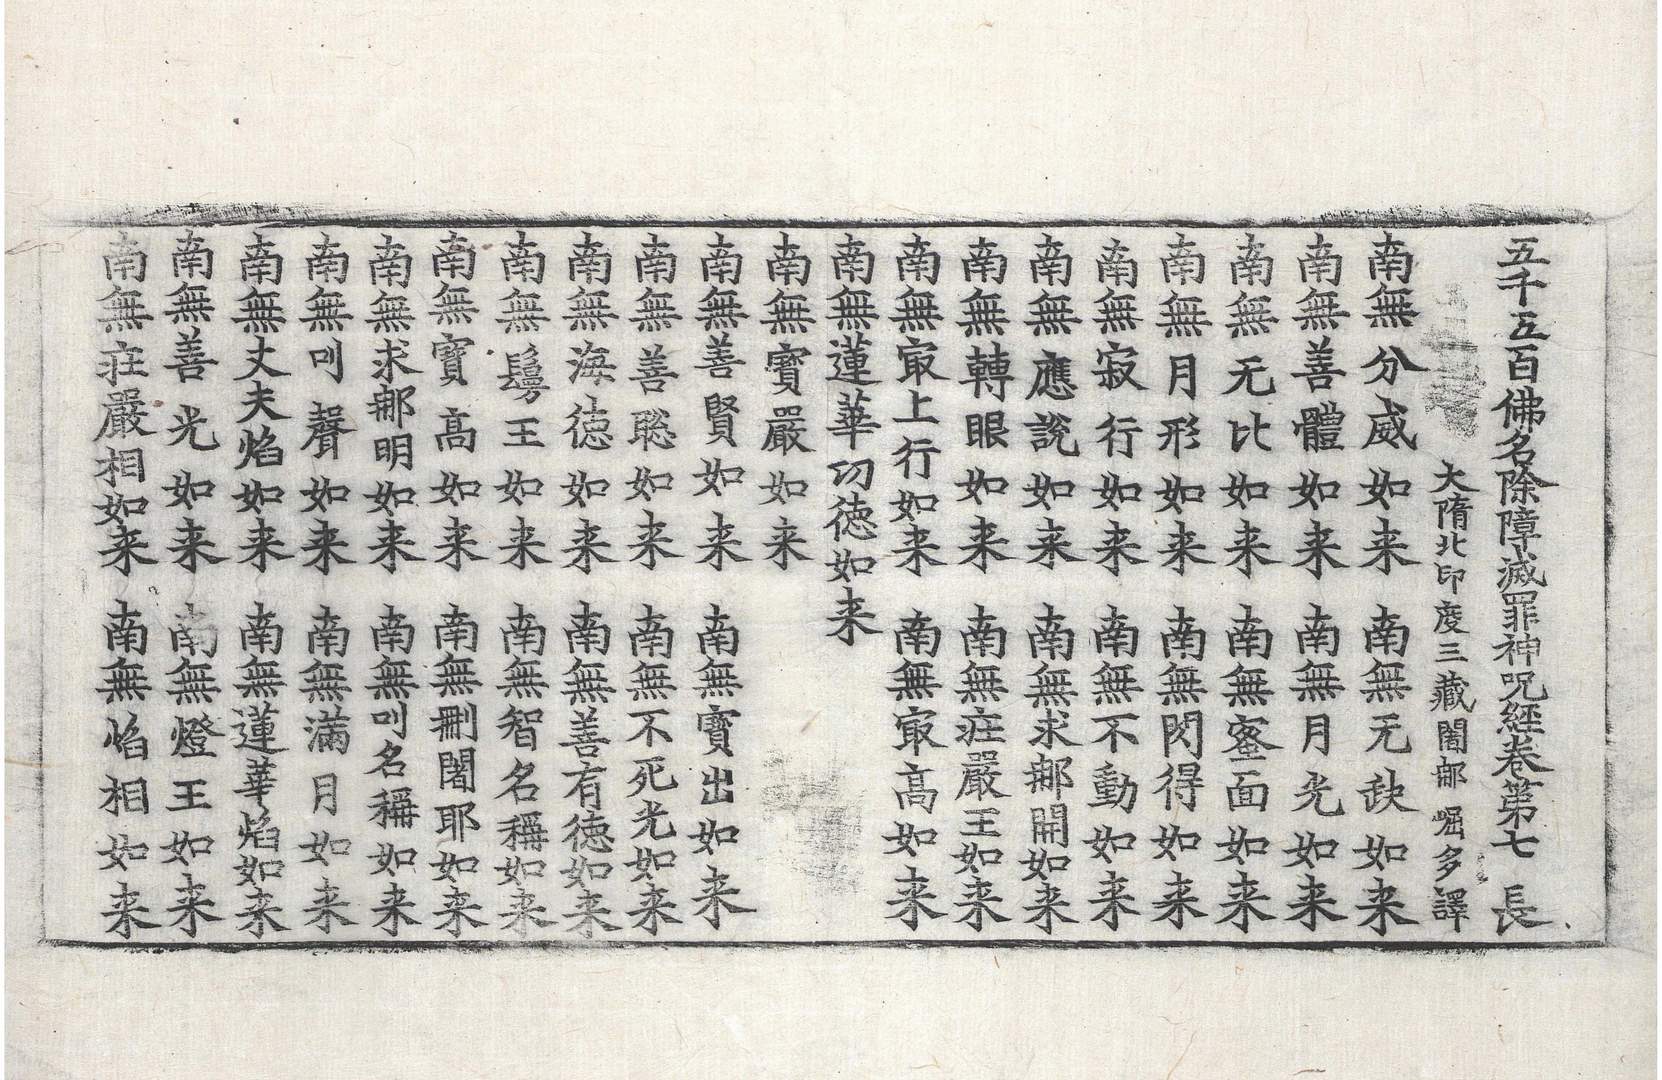 五千五百佛名除障滅罪神呪經卷第七 長
大隋北印度三藏闍那崛多譯
南無分威如来 南無无缺如来
南無善體如来 南無月光如来
南無无比如来 南無寍面如来
南無月形如来 南無閃得如来
南無寂行如来 南無不動如来
南無應說如来 南無求那開如来
南無轉眼如来 南無庄嚴王如来
南無㝡上行如来 南無㝡高如来
南無蓮華功徳如来
南無寳嚴如来
南無善賢如来 南無寳出如来
南無善聡如来 南無不死光如来
南無海徳如来 南無善有徳如来
南無鬘王如来 南無智名稱如来
南無寳高如来 南無刪闍耶如来
南無求那明如来 南無叫名稱如来
南無叫聲如来 南無滿月如来
南無丈夫焰如来 南無蓮華焰如来
南無善光如来 南無燈王如来
南無庄嚴相如来 南無焰相如来